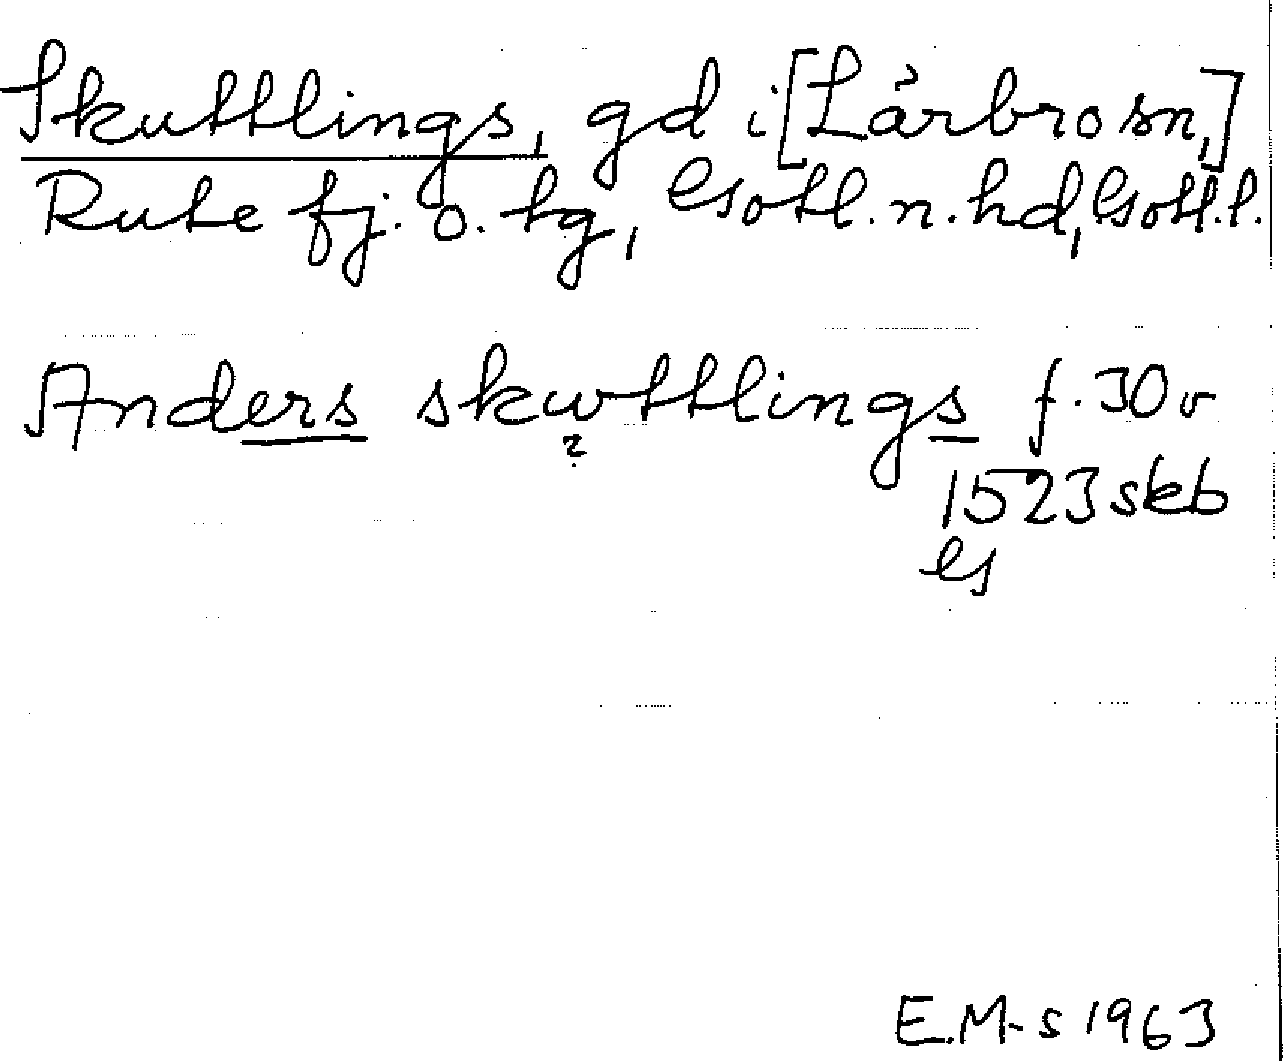 Skuttlings, gd i [Lärbro sn,]
Rute fj. o. tg, Gotl. n. hd, Gotl. l.
Anders skwttlings f. 30 v
?
1523 skb
G
E.M-s 1963